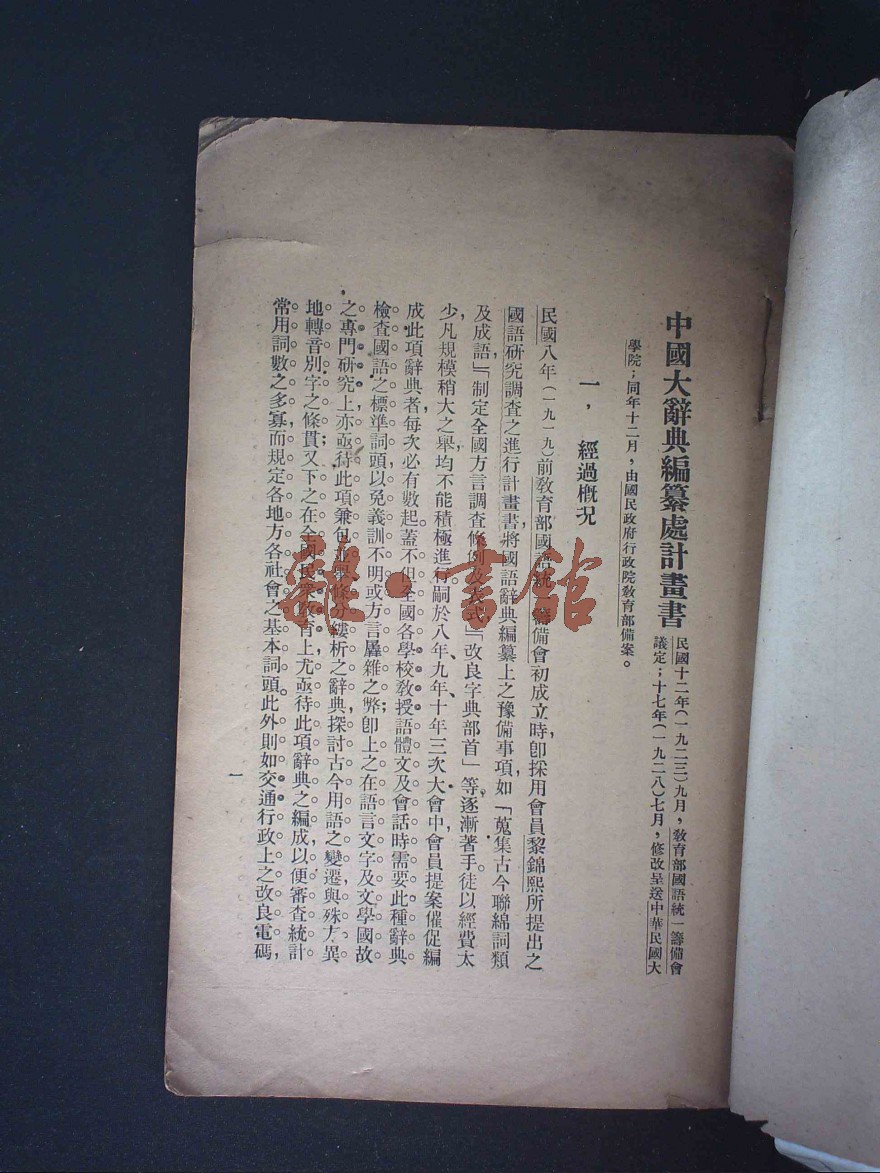 中國大辭典編纂處計畫書
民國十二年(一九二三)九月，敎育部國語統一籌備會
議定；十七年(一九二八)七月，修改呈送中華民國大
學院；同年十二月，由國民政府行政院敎育部備案。
一，經過槪況
民國八年(一九一九)前敎育部國語統一籌備會初成立時，卽採用會員黎錦熙所提出之
國語硏究調查之進行計畫書，將國語辭典編纂上之豫備事項，如「蒐集古今聯綿詞類
及成語，」「制定全國方言調查條例及表式，」「改良字典部首」等，逐漸著手。徒以經費太
少，凡規模稍大之舉，均不能積極進行。嗣於八年、九年、十年三次大會中，會員提案催促編
成此項辭典者，每次必有數起。蓋不但全國各學校敎授語體文及會話時，需要此種辭典
檢查國語之標準詞頭，以免義訓不明或方言厖雜之弊；卽上之在語言文字及文學國故
之專門硏究上，亦亟待此項兼包並舉，條分縷析之辭典，探討古今用語之變遷，與殊方異
地轉音別字之條貫；又下之在全國民衆敎育上，尤亟待此項辭典之編成，以便審查統計
常用詞數之多寡，而規定各地方各社會之基本詞頭。此外則如交通行政上之改良電碼，
一
雜·書館